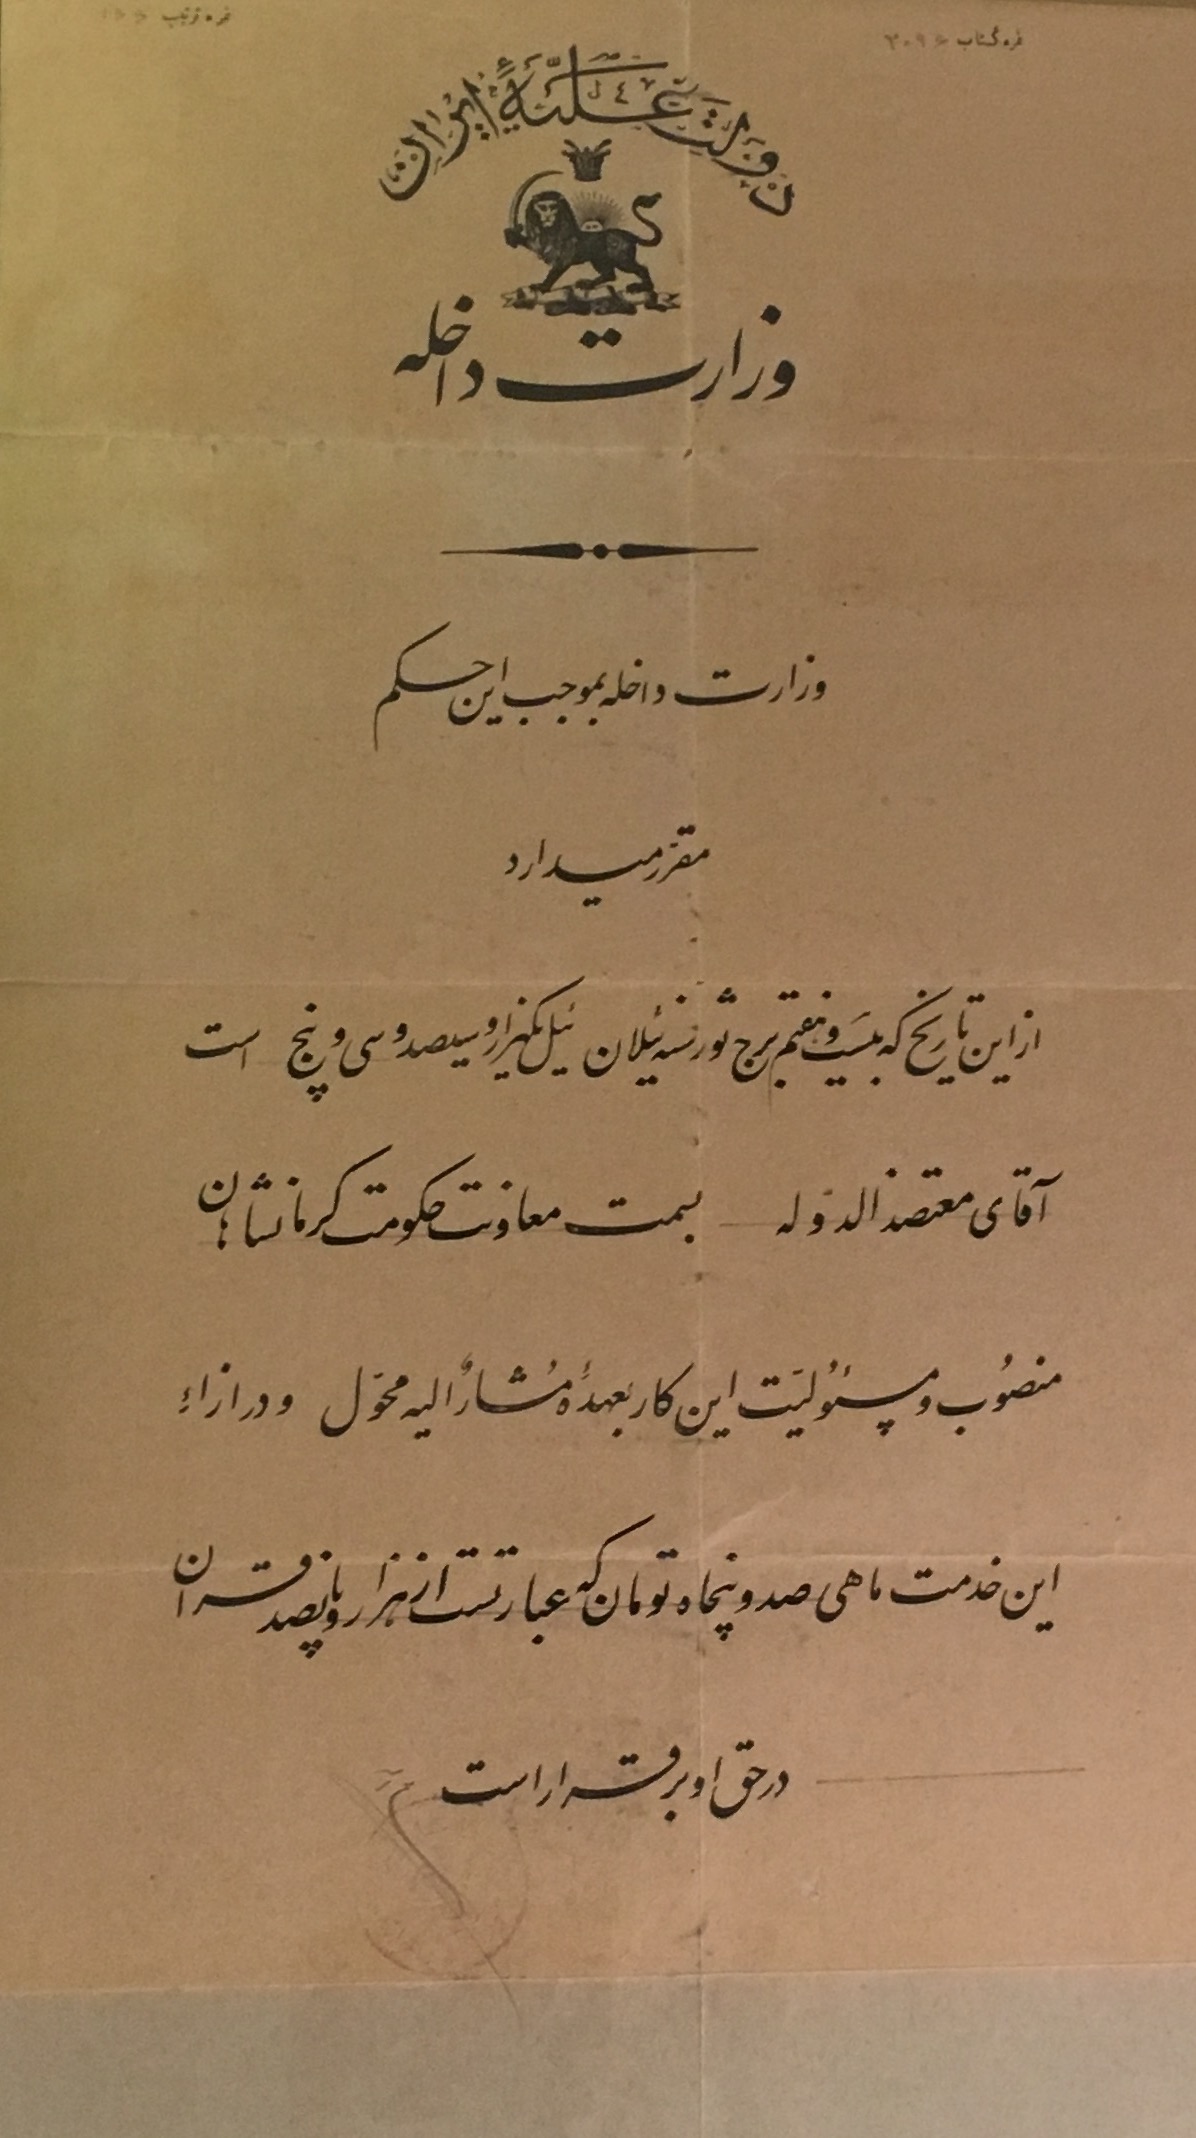 نمره کتاب ۲۰۹۶
نمره ترتیب
دولت علیّهٔ ایران
وزارت داخله
وزارت داخله بموجب این حکم
مقرّر میدارد
از این تاریخ که بیست و هفتم برج ثور سنه ئیلان ئیل یکهزار و سیصد و سی و پنج است
آقای معتضد الدوله بسمت معاونت حکومت کرمانشاهان
منصُوب و مسئُولیّت این کار بعهدهٔ مُشارٌالیه محوّل و در ازاءِ
این خدمت ماهی صد و پنجاه تومان که عبارتست از هزار و پانصد قران
در حق او برقرار است